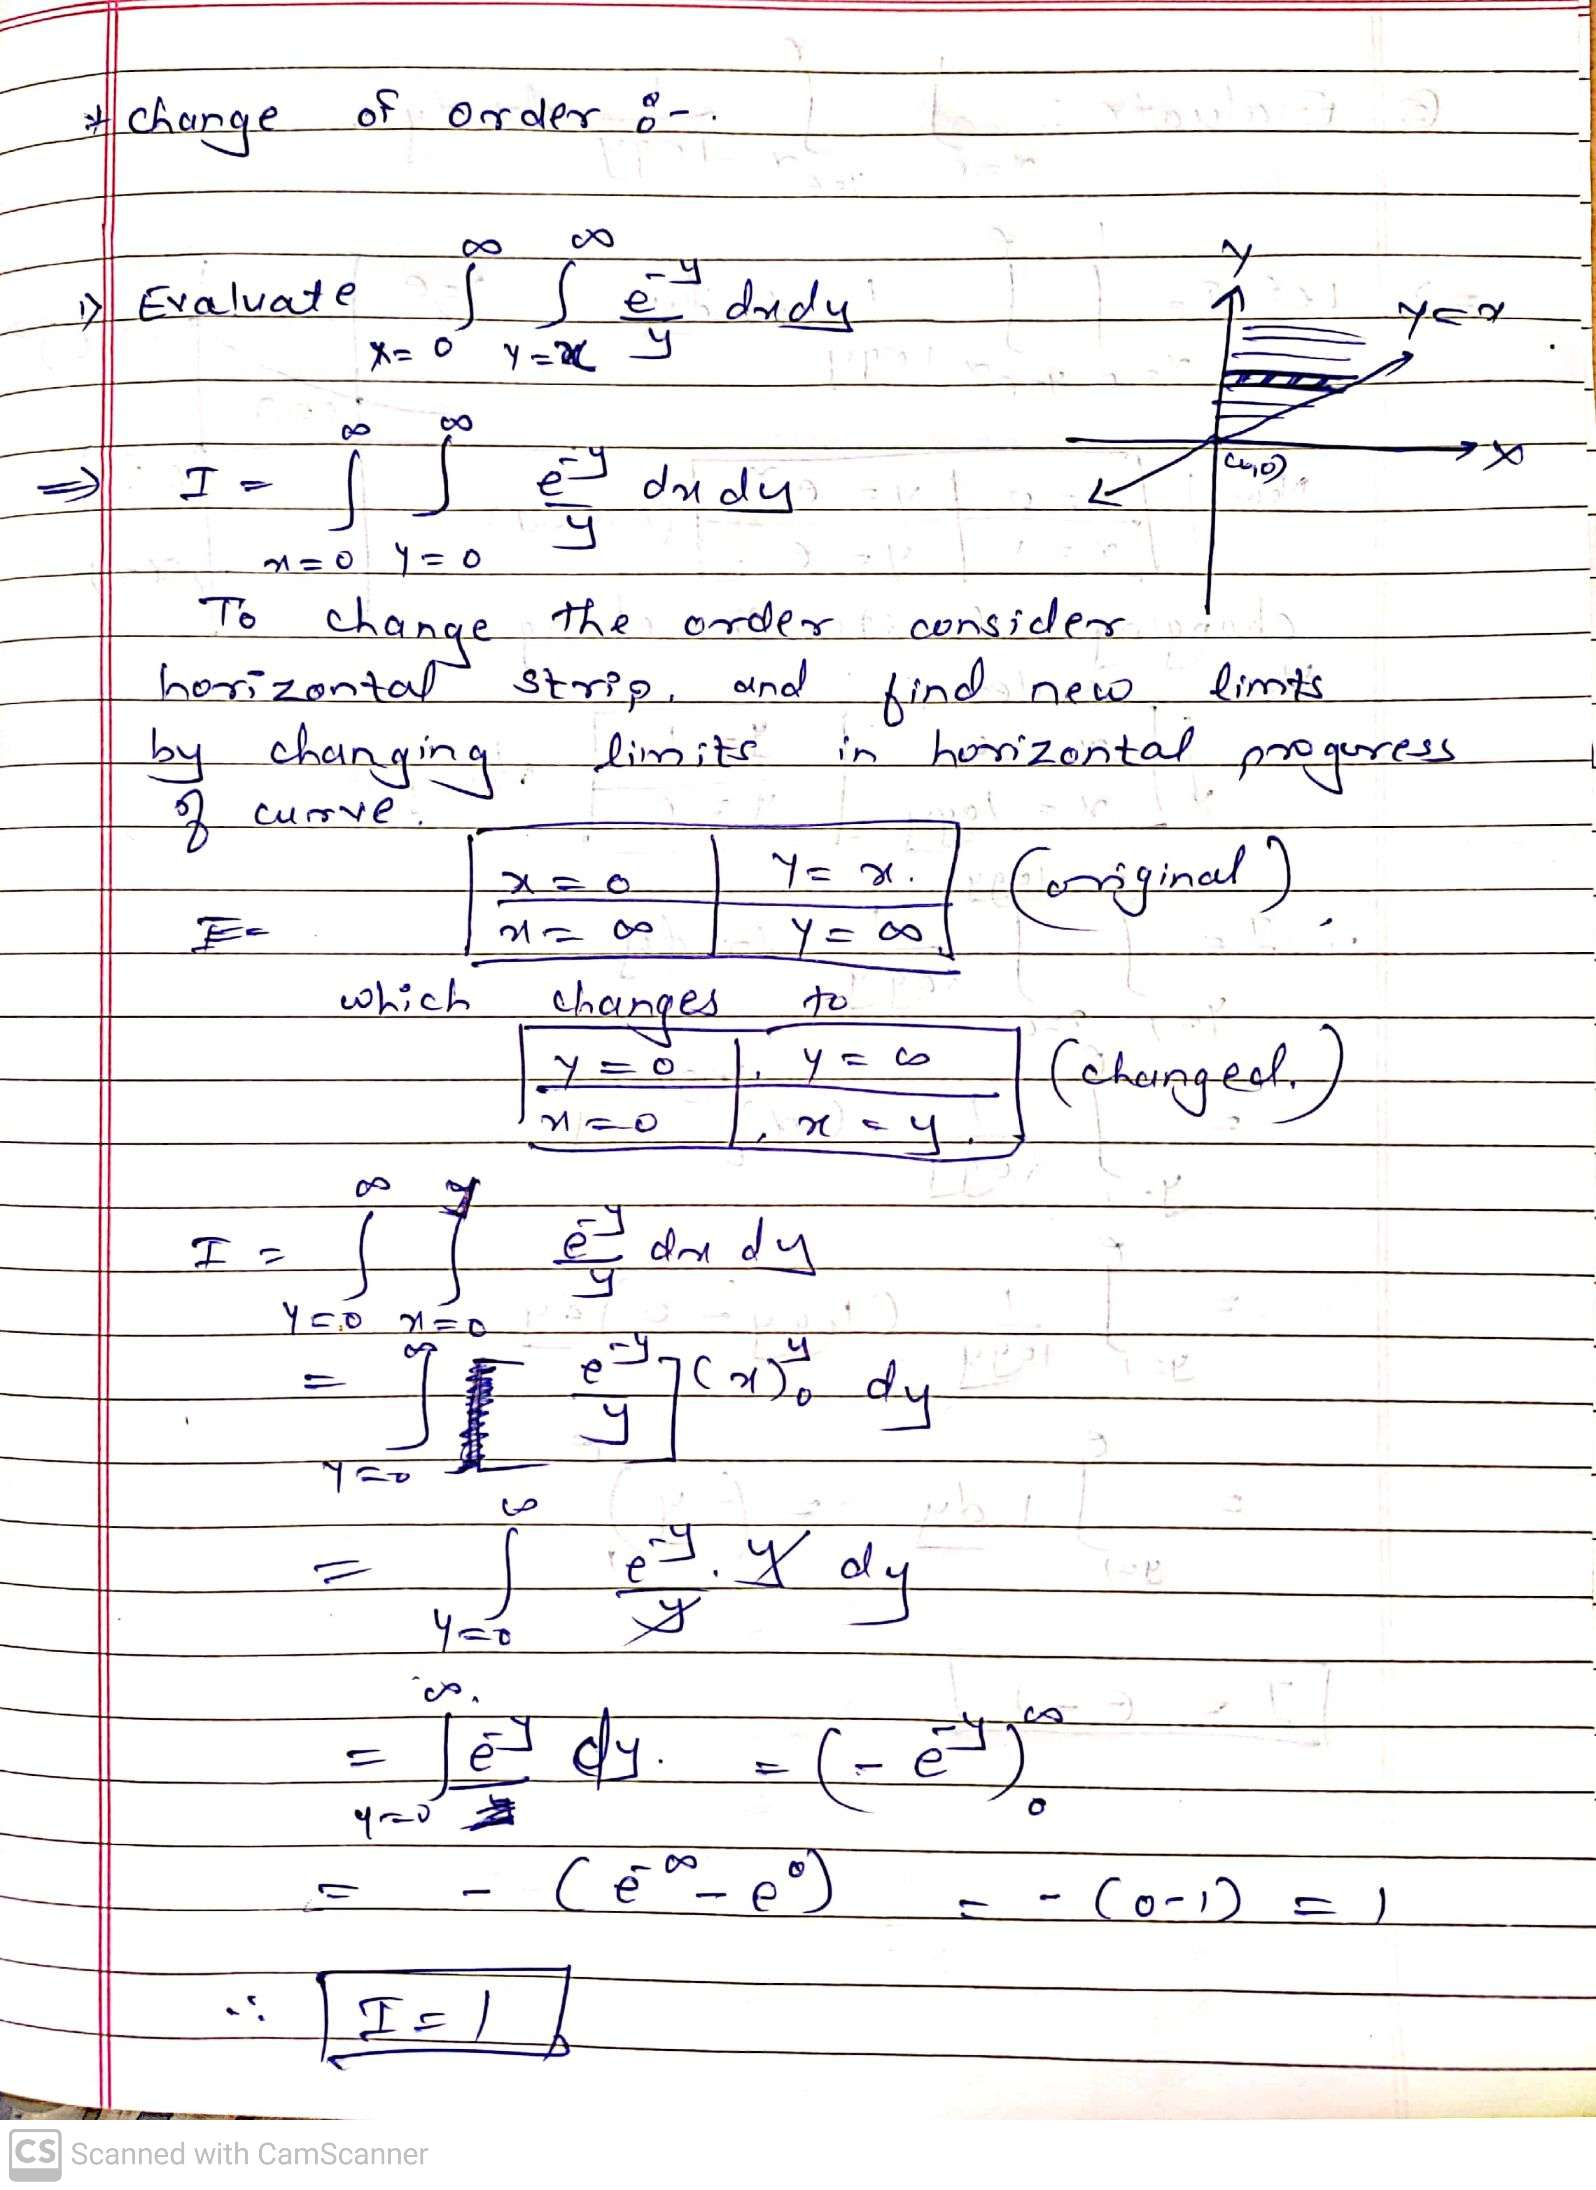 * change of order :-
1) Evaluate ∞∫x=0 ∞∫y=x e^-y/y dxdy
y
y=x
x
(0,0)
⇒ I = ∞∫x=0 ∞∫y=0 e^-y/y dx dy
To change the order consider
horizontal strip, and find new limits
by changing limits in horizontal proguress
of curve.
x=0 | y=x. (original)
I= x=∞ | y=∞
which changes to
y=0 | y=∞ (changed.)
x=0 | x=y.
I = ∞∫y=0 y∫x=0 e^-y/y dx dy
= ∞∫y=0 [e^-y/y](x)^y_0 dy
= ∞∫y=0 e^-y/y . y dy
= ∞∫y=0 e^-y dy. = (-e^-y)^∞_0
= -(e^-∞ - e^0) = -(0-1) = 1
∴ I=1
CS Scanned with CamScanner